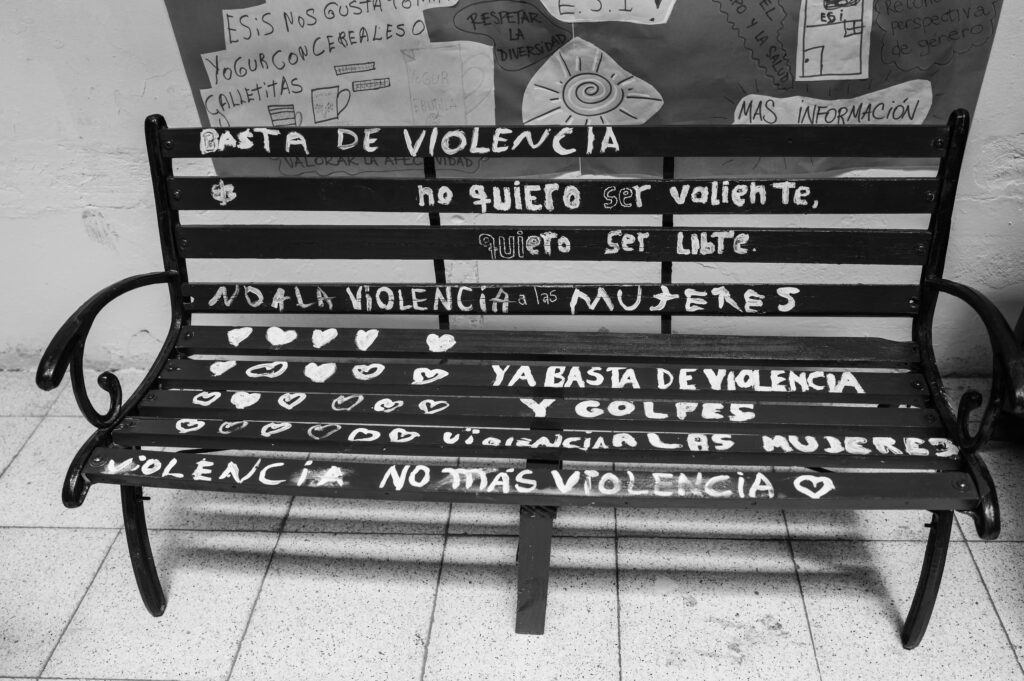 ESIS NOS GUSTA TOMA
YOGUR CON CEREALES O
GALLETITAS
RESPETAR
LA
DIVERSIDAD
E.S.I
ESI
perspectiva
de género
MAS INFORMACIÓN
VALORAR LA AFECTIVIDAD
BASTA DE VIOLENCIA
no quiero ser valiente,
quiero ser LIBTE.
NO A LA VIOLENCIA a las MUJERES
YA BASTA DE VIOLENCIA
Y GOLPES
VIOLENCIA A LAS MUJERES
VIOLENCIA NO MÁS VIOLENCIA